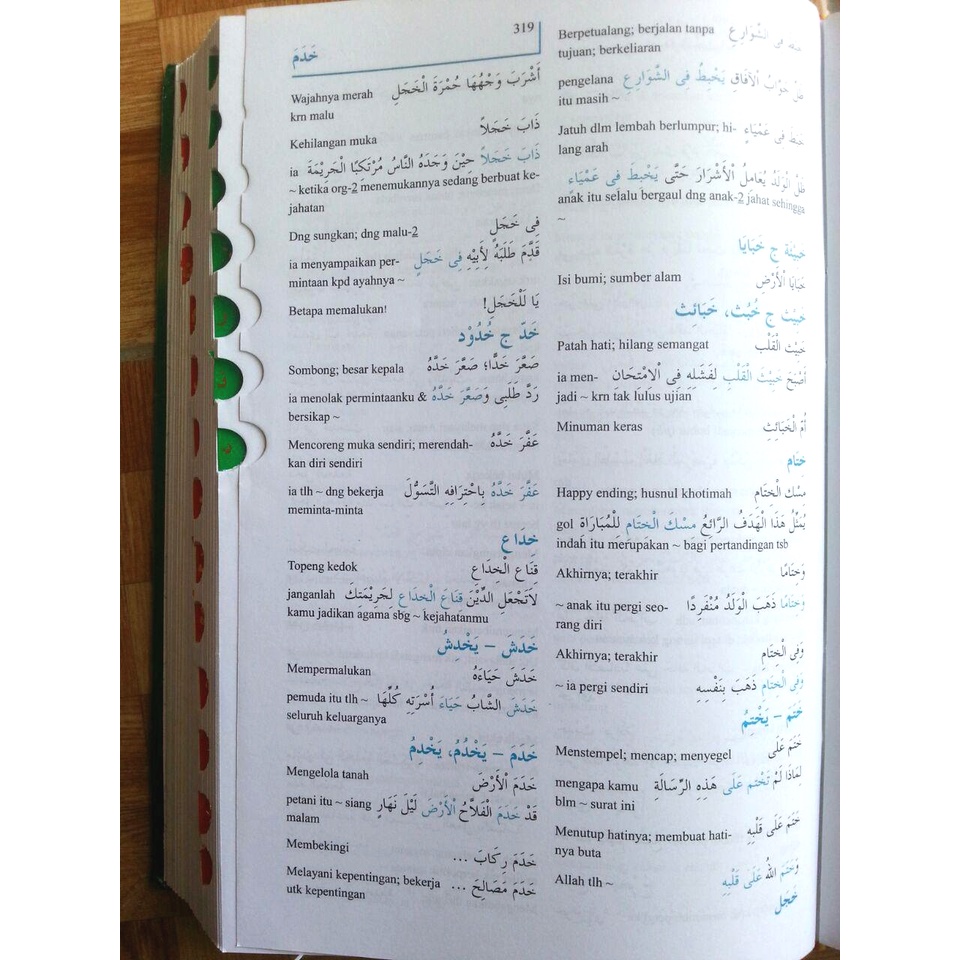 319
خَدَمَ
Berpetualang; berjalan tanpa فِى الشَّوَارِعِ
tujuan; berkeliaran
pengelana ظَلَّ جَوَّابُ اْلآفَاقِ يَخْبِطُ فِى الشَّوَارِعِ
itu masih ~
Jatuh dlm lembah berlumpur; hi- خَبَطَ فِى عَمْيَاءِ
lang arah
ظَلَّ الْوَلَدُ يُعَامِلُ اْلأَشْرَارَ حَتَّى يَخْبِطَ فِى عَمْيَاءِ
anak itu selalu bergaul dng anak-2 jahat sehingga
~
خَبِيْئَة ج خَبَايَا
Isi bumi; sumber alam خَبَايَا اْلأَرْضِ
خَبِيْث ج خُبُث، خَبَائِث
Patah hati; hilang semangat خَبِيْث الْقَلْبِ
ia men- أَصْبَحَ خَبِيْثَ الْقَلْبِ لِفَشَلِهِ فِى اْلامْتِحَان
jadi ~ krn tak lulus ujian
Minuman keras أُمّ الْخَبَائِثِ
خِتَام
Happy ending; husnul khotimah مِسْك الْخِتَامِ
gol يُمَثِّلُ هَذَا الْهَدَفُ الرَّائِعُ مِسْكَ الْخِتَامِ لِلْمُبَارَاةِ
indah itu merupakan ~ bagi pertandingan tsb
Akhirnya; terakhir وَخِتَامًا
~ anak itu pergi seo- وَخِتَامًا ذَهَبَ الْوَلَدُ مُنْفَرِدًا
rang diri
Akhirnya; terakhir وَفِى الْخِتَامِ
~ ia pergi sendiri وَفِى الْخِتَامِ ذَهَبَ بِنَفْسِهِ
خَتَمَ – يَخْتِمُ
Menstempel; mencap; menyegel خَتَمَ عَلَى
mengapa kamu لِمَاذَا لَمْ تَخْتم عَلَى هَذِهِ الرِّسَالَةِ
blm ~ surat ini
Menutup hatinya; membuat hati- خَتَمَ عَلَى قَلْبِهِ
nya buta
Allah tlh ~ وَخَتَمَ اللهُ عَلَى قَلْبِهِ
خَجَل
Wajahnya merah أَشْرَبَ وَجْهُهَا حُمْرَةَ الْخَجَلِ
krn malu
Kehilangan muka ذَابَ خَجَلاً
ia ذَابَ خَجَلاً حِيْنَ وَجَدَهُ النَّاسُ مُرْتَكِبًا الْجَرِيْمَةَ
~ ketika org-2 menemukannya sedang berbuat ke-
jahatan
Dng sungkan; dng malu-2 فِى خَجَلٍ
ia menyampaikan per- قَدَّمَ طَلَبَهُ ِلأَبِيْهِ فِى خَجَلٍ
mintaan kpd ayahnya ~
Betapa memalukan! يَا لَلْخَجَلِ!
خَدّ ج خُدُوْد
Sombong; besar kepala صَعَّرَ خَدًّا؛ صَعَّرَ خَدَّهُ
ia menolak permintaanku & رَدَّ طَلَبِى وَصَعَّرَ خَدَّهُ
bersikap ~
Mencoreng muka sendiri; merendah- عَفَّرَ خَدَّهُ
kan diri sendiri
ia tlh ~ dng bekerja عَفَّرَ خَدَّهُ بِاحْتِرَافِهِ التَّسَوُّلَ
meminta-minta
خِدَاع
Topeng kedok قِنَاع الْخِدَاعِ
janganlah لاَتَجْعَلِ الدِّيْنَ قِنَاعَ الْخِدَاعِ لِجَرِيْمَتِكَ
kamu jadikan agama sbg ~ kejahatanmu
خَدَشَ – يَخْدِشُ
Mempermalukan خَدَشَ حَيَاءَهُ
pemuda itu tlh ~ خَدَشَ الشَّابُ حَيَاءَ أُسْرَتِهِ كُلِّهَا
seluruh keluarganya
خَدَمَ – يَخْدُمُ، يَخْدِمُ
Mengelola tanah خَدَمَ اْلأَرْضَ
petani itu ~ siang قَدْ خَدَمَ الْفَلاَّحُ اْلأَرْضَ لَيْلَ نَهَارٍ
malam
Membekingi خَدَمَ رِكَابَ ...
Melayani kepentingan; bekerja خَدَمَ مَصَالِحَ ...
utk kepentingan